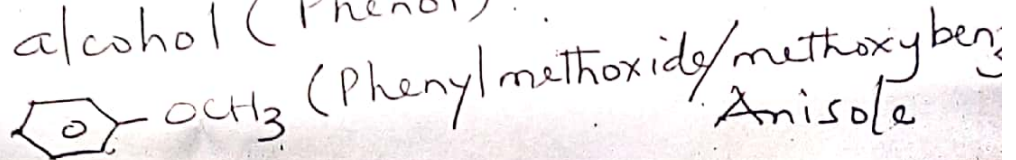 alcohol (Phenol)
-OCH3 (Phenyl methoxide/methoxy ben
Anisole